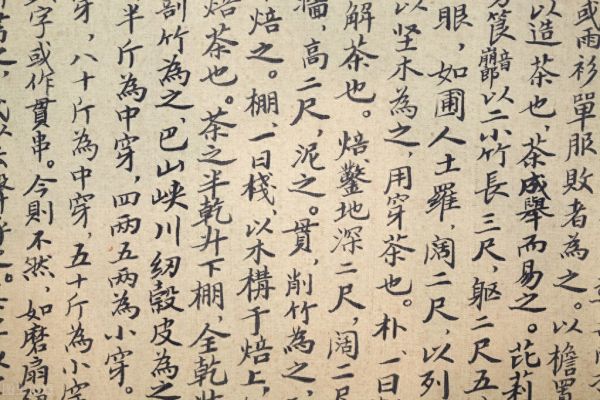 或雨衫單服敗者為之。以檐置
以造茶也,茶成舉而易之。芘莉
筤,音崩郎以二小竹長三尺,軀二尺五
眼,如圃人土羅,闊二尺,以列
以坚木為之,用穿茶也。朴,一曰
解茶也。焙,鑿地深二尺,闊二尺
墻,高二尺,泥之。貫,削竹為之,
焙之。棚,一曰棧,以木構于焙上,
焙茶也。茶之半乾升下棚,全乾
剖竹為之,巴山峡川紉穀皮為之
半斤為中穿,四兩五兩為小穿。
穿,八十斤為中穿,五十斤為小穿
字或作貫串。今則不然,如磨扇